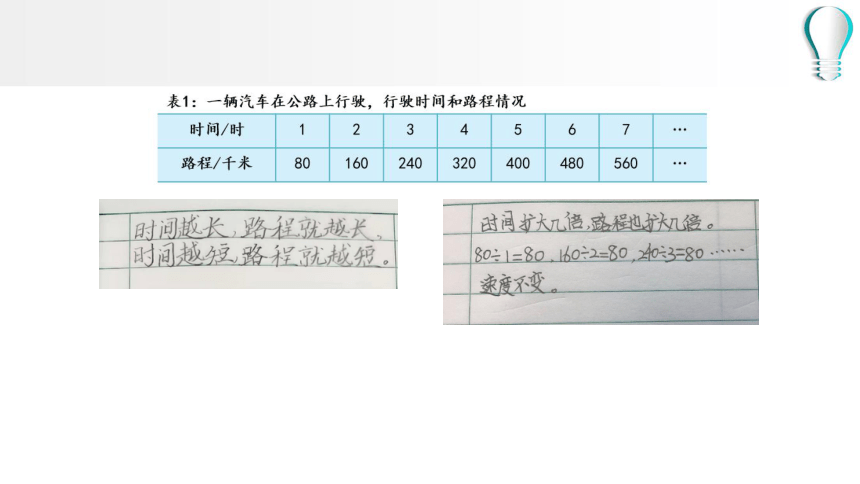 表1：一辆汽车在公路上行驶，行驶时间和路程情况
时间/时 1 2 3 4 5 6 7 …
路程/千米 80 160 240 320 400 480 560 …
时间越长，路程就越长，
时间越短，路程就越短。
时间扩大几倍，路程也扩大几倍。
80÷1=80，160÷2=80，240÷3=80……
速度不变。